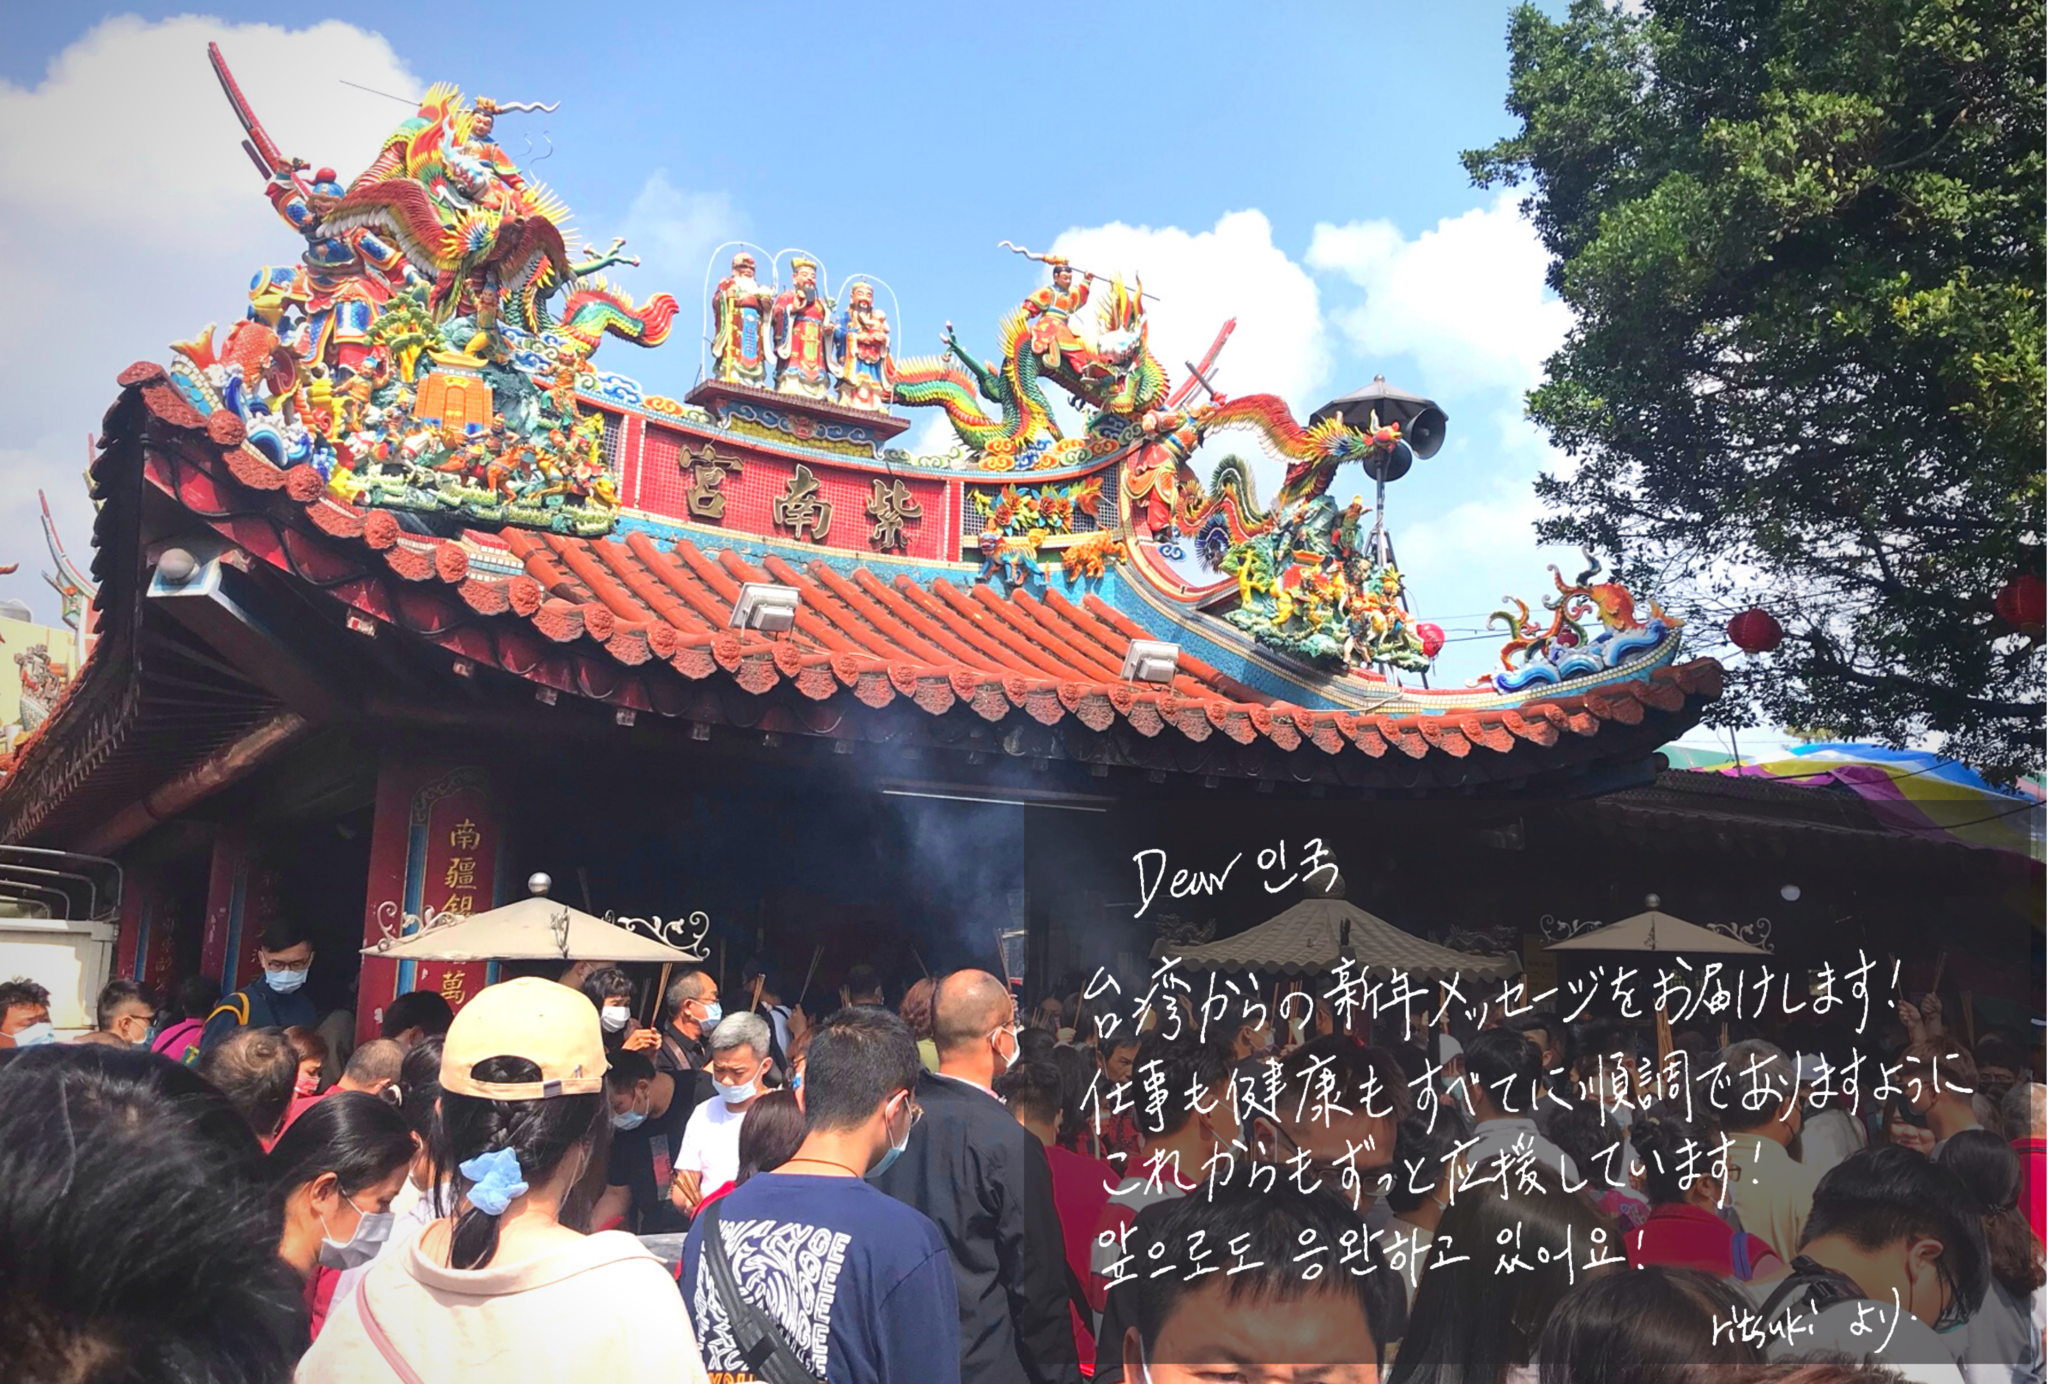 紫南宮
南疆錫
萬
Dear 인국
台湾からの新年メッセージをお届けします!
仕事も健康もすべてに順調でありますように
これからもずっと応援しています!
앞으로도 응완하고 있어요!
ritsuki より.